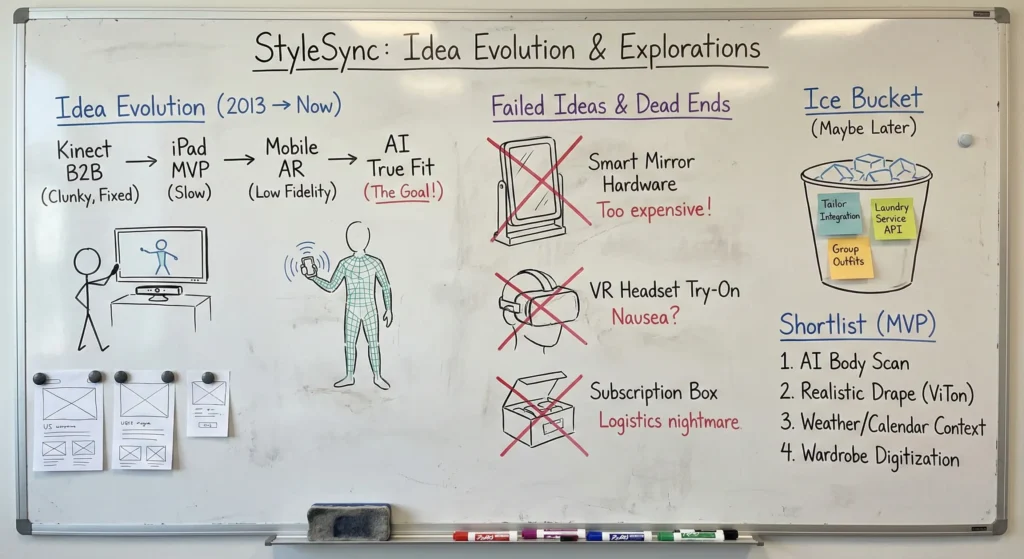 StyleSync: Idea Evolution & Explorations
Idea Evolution (2013 → Now)
Kinect
B2B
(Clunky, Fixed)
→
iPad
MVP
(Slow)
→
Mobile
AR
(Low Fidelity)
→
AI
True Fit
(The Goal!)
Failed Ideas & Dead Ends
Smart Mirror
Hardware
Too expensive!
VR Headset Try-On
Nausea?
Subscription Box
Logistics nightmare
Ice Bucket
(Maybe Later)
Tailor
Integration
Laundry
Service
API
Group
Outfits
Shortlist (MVP)
1. AI Body Scan
2. Realistic Drape (ViTon)
3. Weather/Calendar Context
4. Wardrobe Digitization